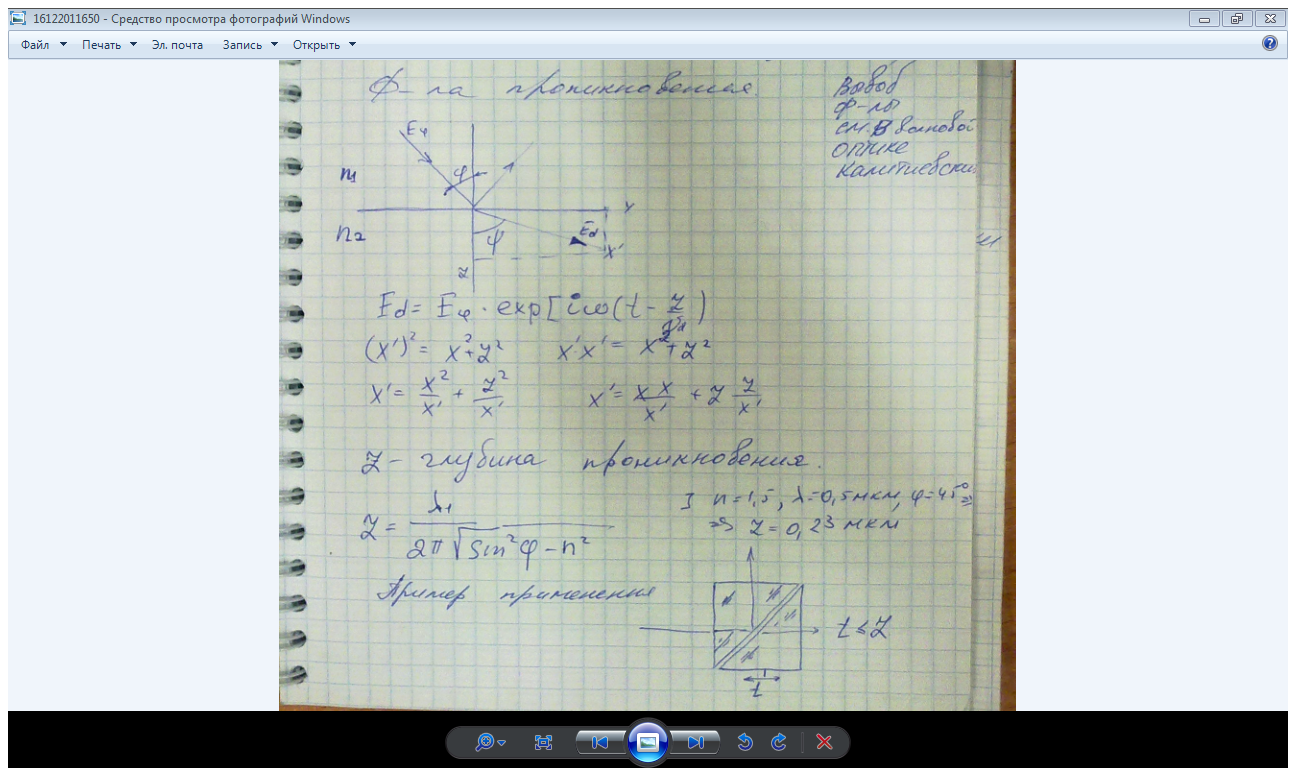 16122011650 - Средство просмотра фотографий Windows
Файл Печать Эл. почта Запись Открыть
Ф-ла проникновения.
Вывод
ф-лы
см. в волновой
оптике
Калитиевский
Eφ
φ
n₁
Y
n₂
ψ
Ed
X'
Z
Ed = Eφ · exp[iω(t - Z/Vd)
(X')² = X² + Z² X'X' = X² + Z²
X' = X²/X' + Z²/X' X' = X X/X' + Z Z/X'
Z - глубина проникновения.
] n = 1,5, λ = 0,5 мкм, φ = 45° ⇒
⇒ Z = 0,23 мкм
Z = λ₁/2π√sin²φ - n²
Пример применения
t ≤ Z
t